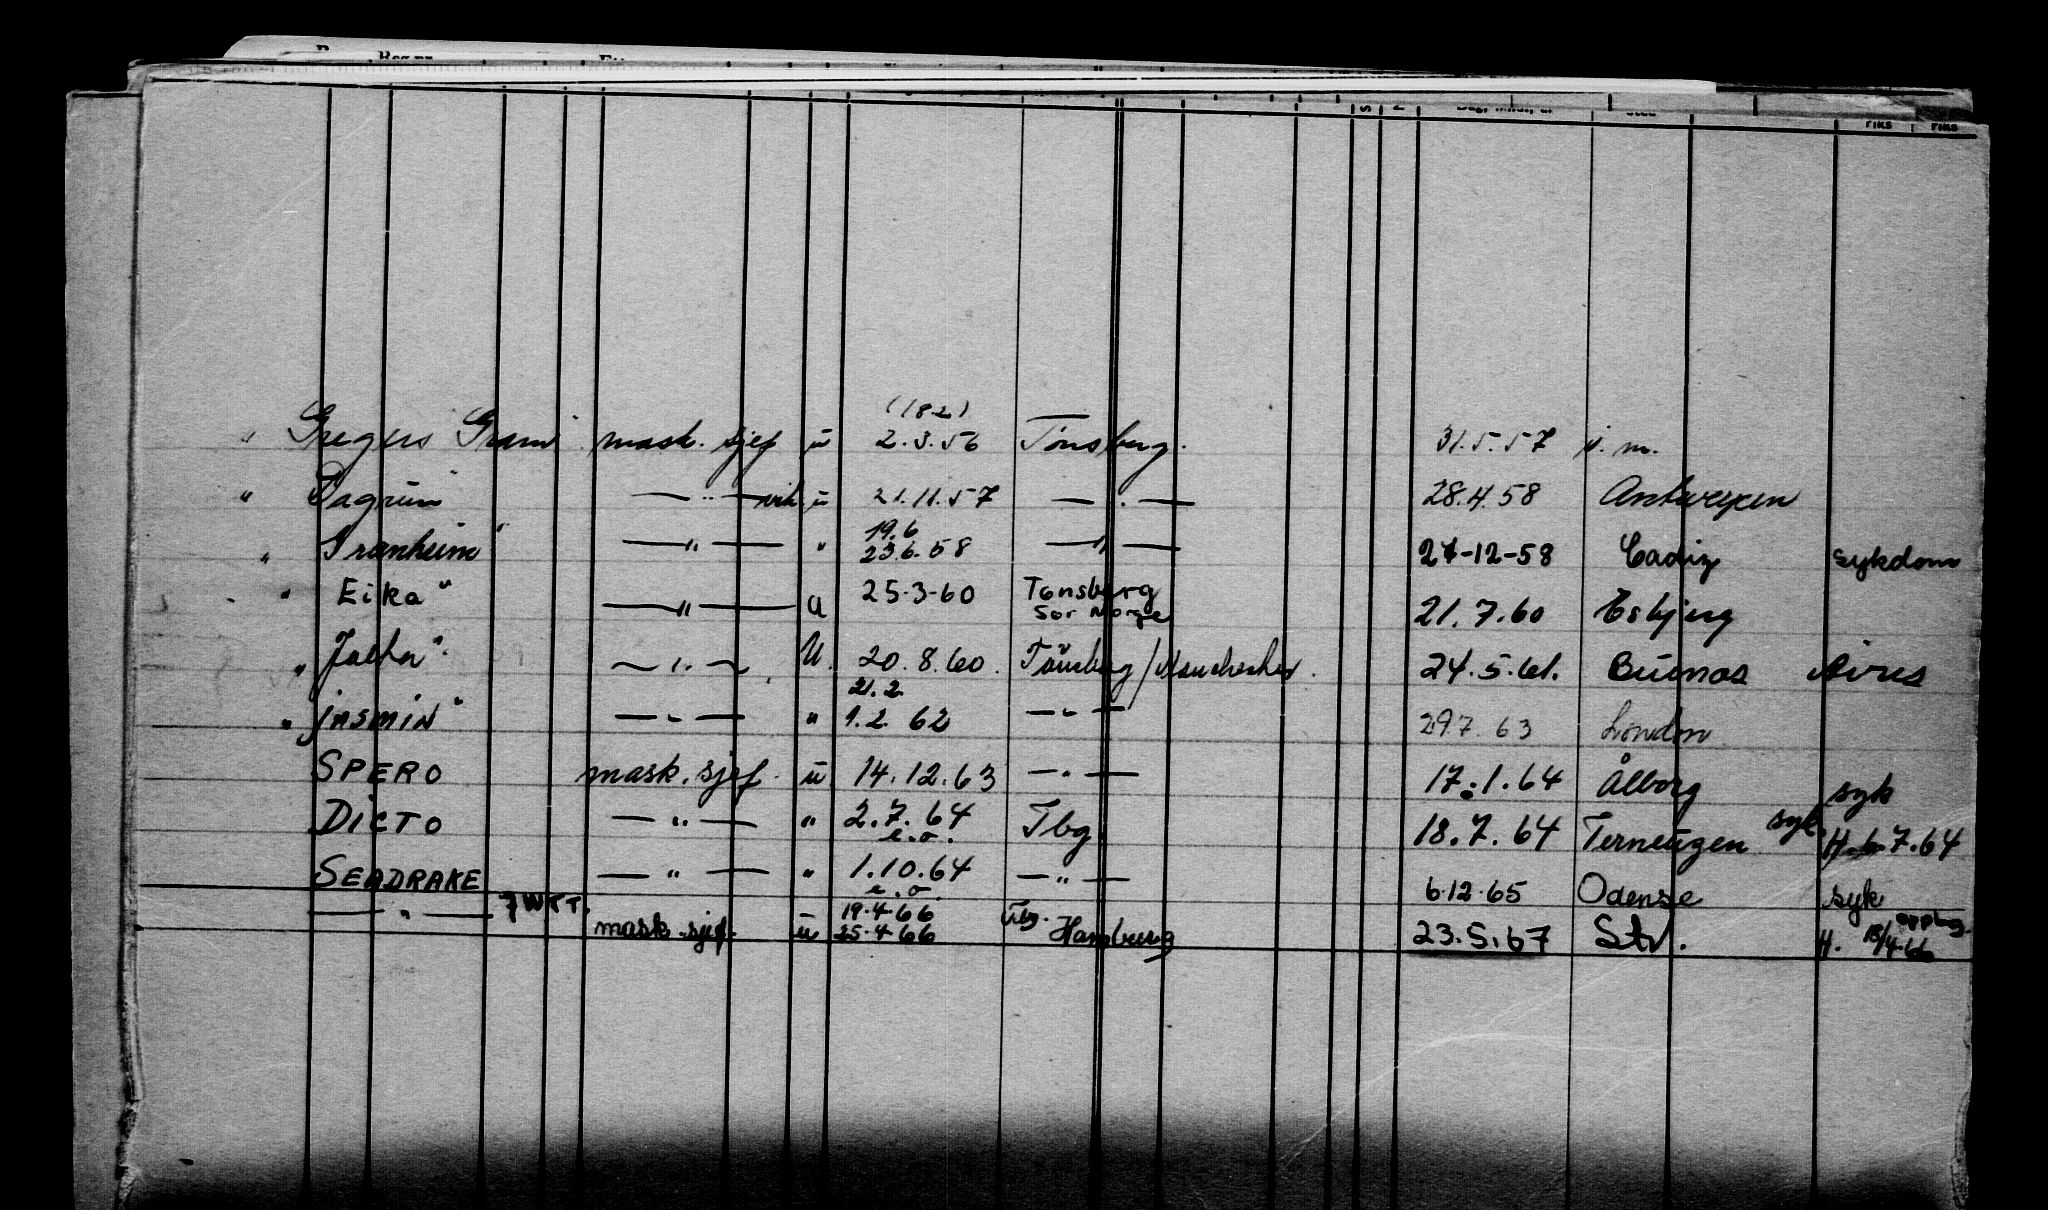 (182)
" Gregers Gram" mask. sjef u 2.3.56 Tønsberg. 31.5.57 u. m.
" Dagrun" — " — vik u 21.11.57 — " — 28.4.58 Antwerpen
19.6
" Tranheim" — " — " 23.6.58 — " — 27-12-58 Cadiz sykdom
" Eika" — " — U 25-3-60 Tønsberg 21.7.60 Esbjerg
Sør Norge
" — " — U. 20.8.60. Tønsberg/Manchester. 24.5.61. Buenos Aires
21.2.
" JASMIN" — " — " 1.2. 62 — " — 297. 63 London
SPERO mask. sjef. u 14.12.63 — " — 17.1.64 Ålborg syk
DICTO — " — " 2.7.64 Tbg. 18.7.64 Terneuzen syk. H. 6.7.64
e.o.
SEADRAKE — " — " 1.10.64 — " — 6.12.65 Odense syk
e.o.
— " — 7WTT. mask. sjef. u 19.4.66 Tbg. Hamburg 23.5.67 Stv. H. 18/4-66
25.4.66